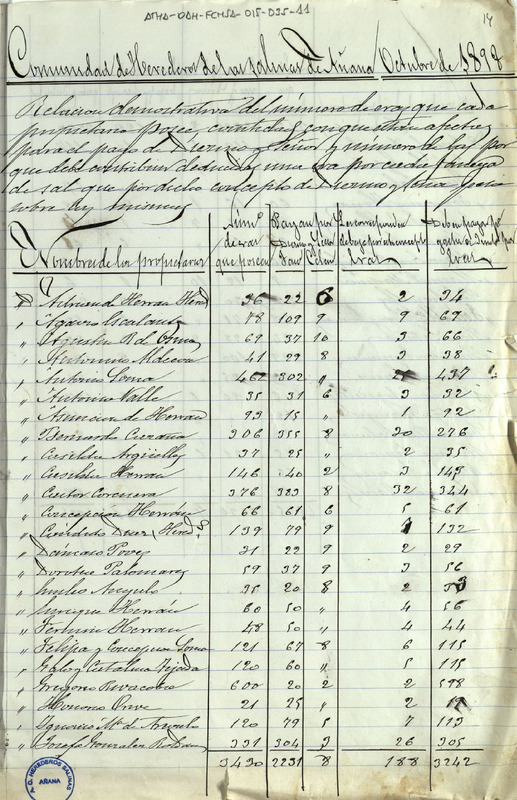 ATHA-DAH-FCHSA-015-035-11
14
Comunidad de Herederos de las Salinas de Añana Octubre de 1898
Relacion demostrativa del número de eras que cada
propietario posee, cantidad con que estan afectas
para el pago de Diezmo y Señor y número de las por
que debe contribuir deducidas una era por cada fanega
de sal que por dicho concepto de Diezmo y pesa
sobre las mismas
Nombres de los propietarios Núm.º de eras que poseen Pagan por Diezmo y Señor Fan. Celem. Le corresponden de baja por este concepto Eras Deben pagar por Eras
D. Herran Hered. 36 22 6 2 34
" Agapito Escalante 78 109 9 9 69
" Agustin R. de Osma 69 37 10 3 66
" Antonino 41 29 8 3 38
" Antonio Soma 462 302 " 437
" Antonino Valle 35 31 6 3 32
" Asuncion de Herran 93 15 " 1 92
" Bernardo 306 355 8 30 276
" Casilda Argüelles 37 25 " 2 35
" Casilda Herran 146 40 2 3 143
" Castor Corcuera 376 383 8 32 344
" Concepcion Herrán 66 61 6 5 61
" Diaz Hered.º 139 79 9 132
" Dámaso Poves 31 22 9 2 29
" Dorotea Palomares 59 37 9 3 56
" Emilio Angulo 35 20 8 2 33
" Enrique Herrán 60 50 " 4 56
" Fermin Herran 48 50 " 4 44
" Felipa y Concepcion Soma 121 67 8 6 115
" y Catalina Tejada 120 60 " 5 115
" Gregorio Revacoba 600 20 2 2 598
" Honorio Orive 21 25 " 2 19
" Ignacio M.ª de 120 79 5 7 113
" Josefa Gonzalez 331 304 3 26 305
3430 2231 8 188 3242
A. C. HEREDEROS SALINAS
AÑANA